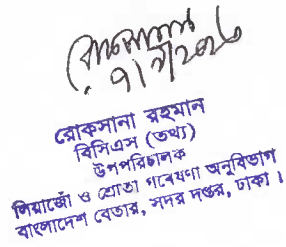 রোকসানা রহমান
বিসিএস (তথ্য)
উপপরিচালক
লিয়াজোঁ ও শ্রোতা গবেষণা অনুবিভাগ
বাংলাদেশ বেতার, সদর দপ্তর, ঢাকা।